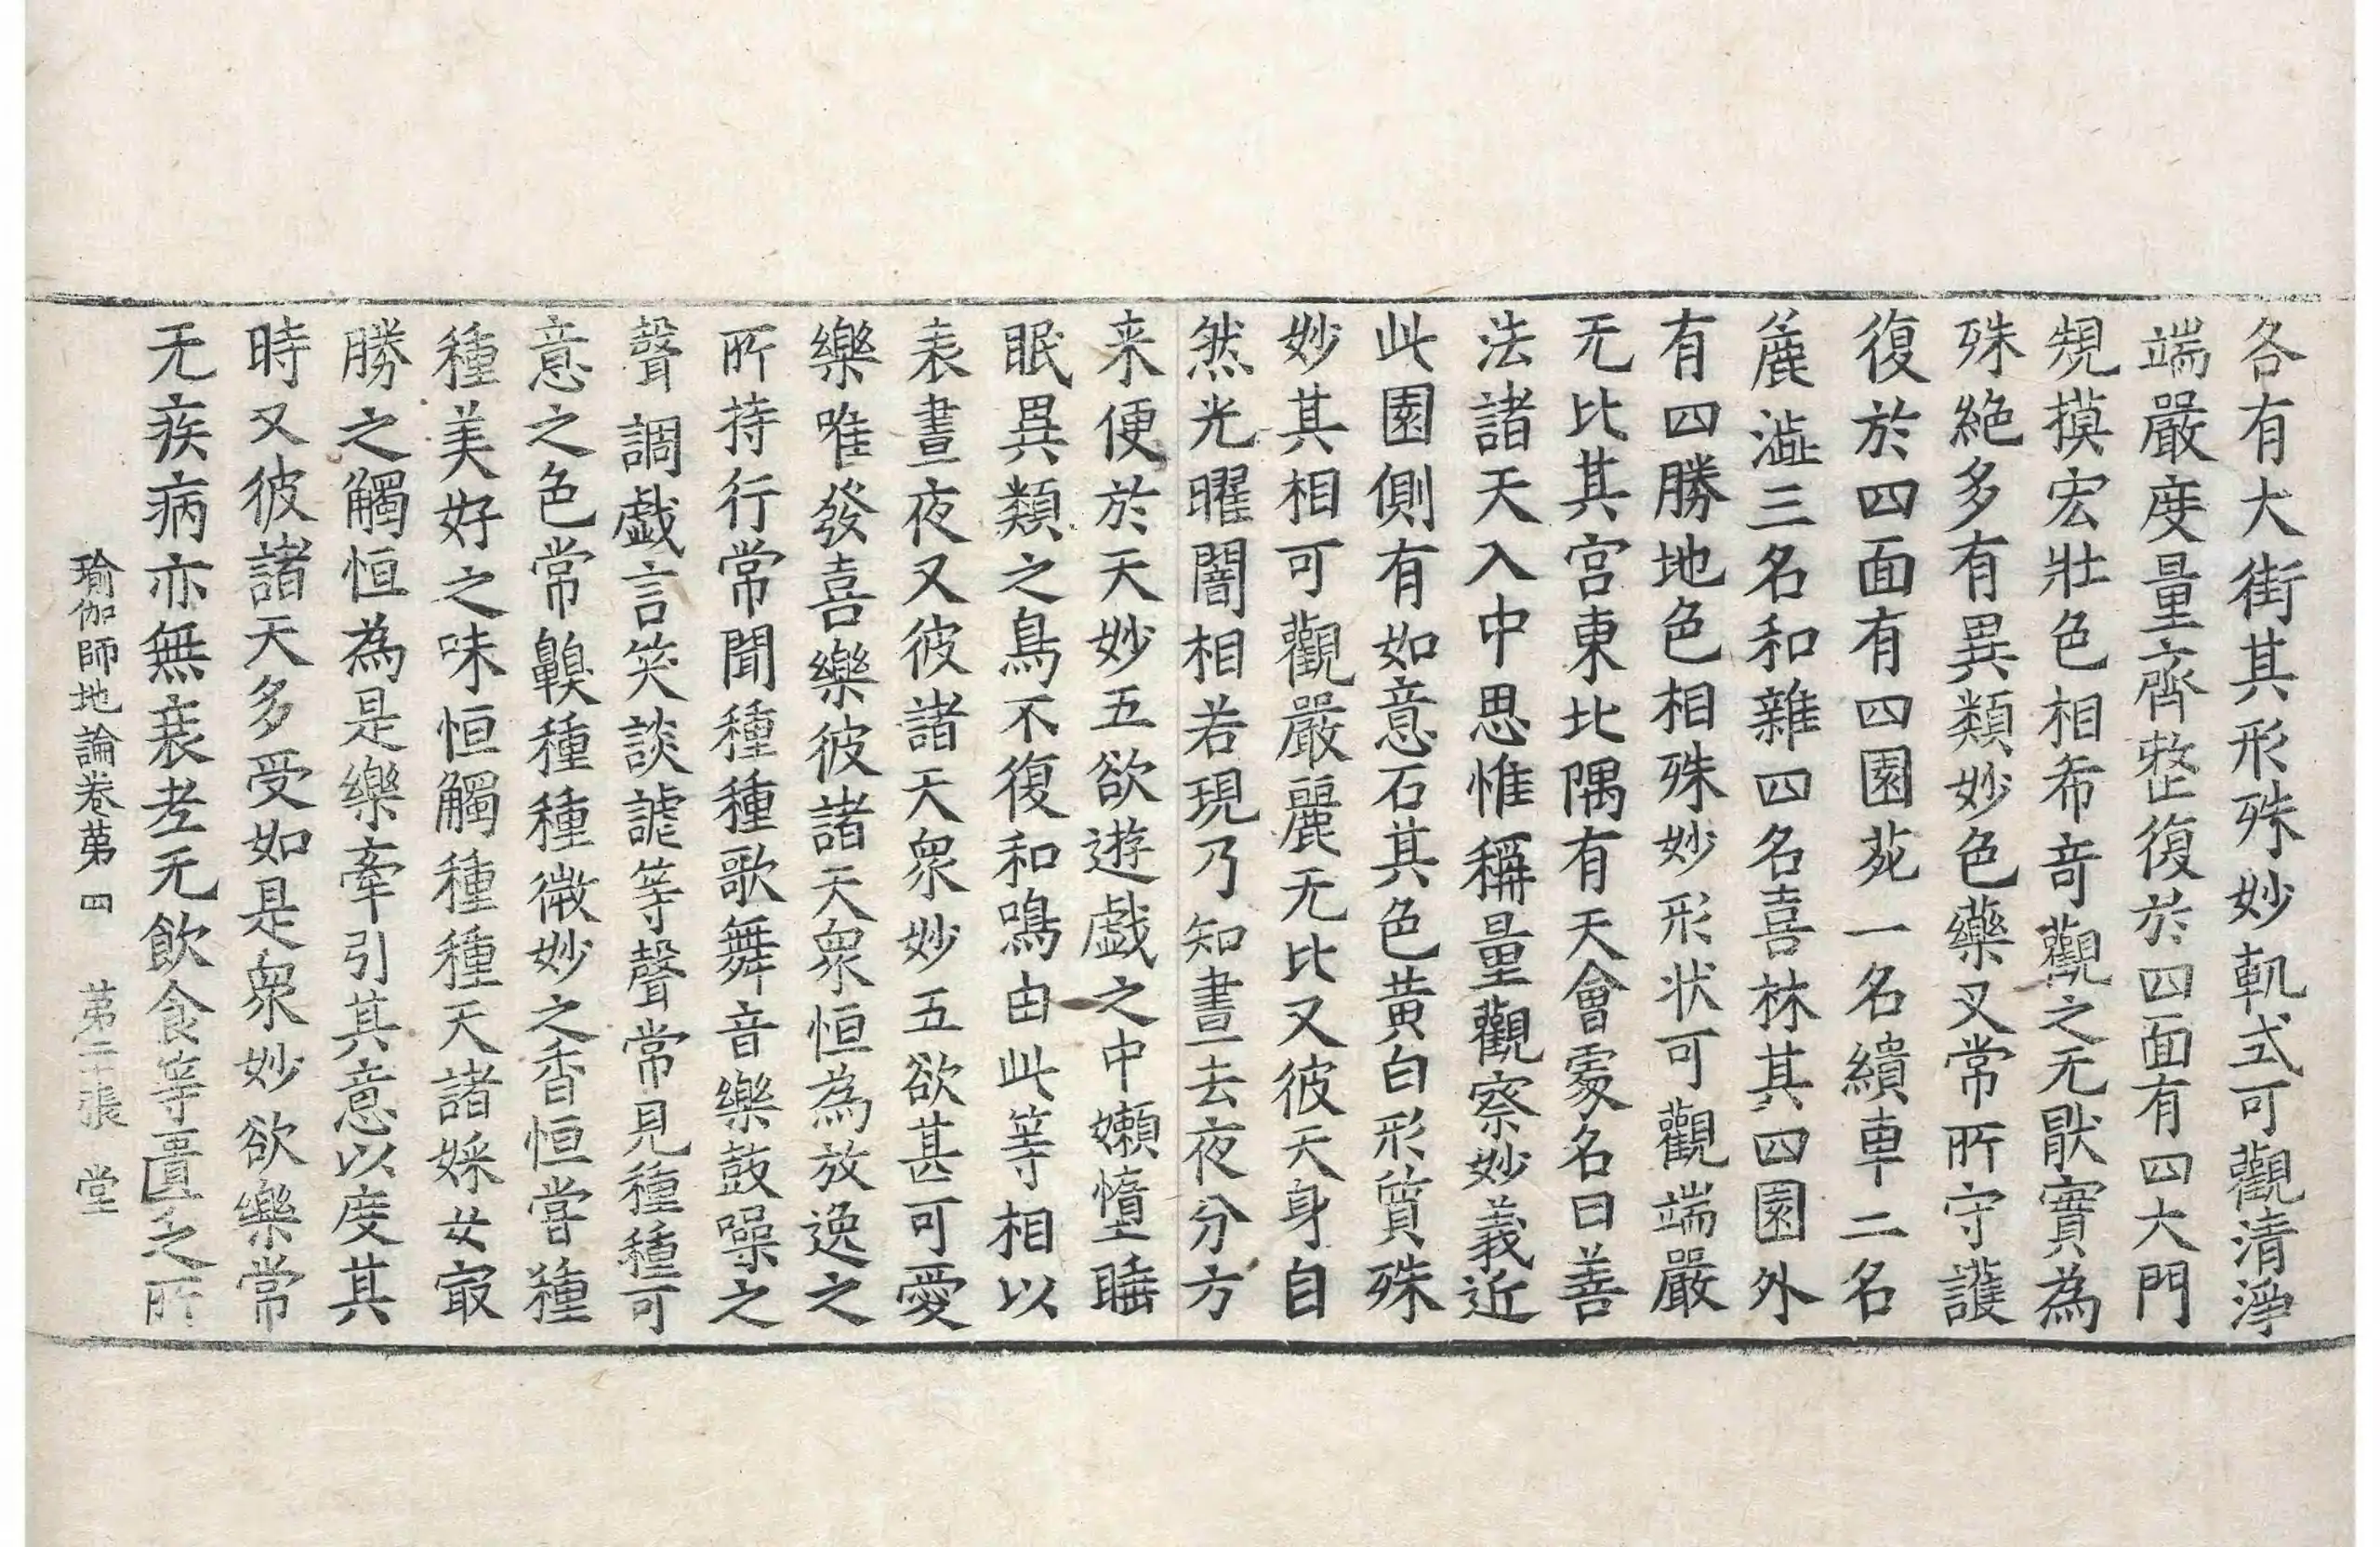 各有大街其形殊妙軌式可觀清淨
端嚴度量齊整復於四面有四大門
規摸宏壯色相希奇觀之无猒實為
殊絶多有異類妙色藥叉常所守護
復於四面有四園苑一名繢車二名
麁澁三名和雜四名喜林其四園外
有四勝地色相殊妙形状可觀端嚴
无比其宮東北隅有天會䖏名曰善
法諸天入中思惟稱量觀察妙義近
此園側有如意石其色黃白形質殊
妙其相可觀嚴麗无比又彼天身自
然光曜闇相若現乃知晝去夜分方
来便於天妙五欲遊戲之中嬾惰睡
眠異類之鳥不復和鳴由此等相以
表晝夜又彼諸天衆妙五欲甚可愛
樂唯發喜樂彼諸天衆恒為放逸之
所持行常聞種種歌舞音樂鼓噪之
聲調戲言笑談謔等聲常見種種可
意之色常齅種種微妙之香恒嘗種
種美好之味恒觸種種天諸婇女㝡
勝之觸恒為是樂牽引其意以度其
時又彼諸天多受如是衆妙欲樂常
无疾病亦無衰老无飲食等匱乏所
瑜伽師地論卷第四 第二十張 堂